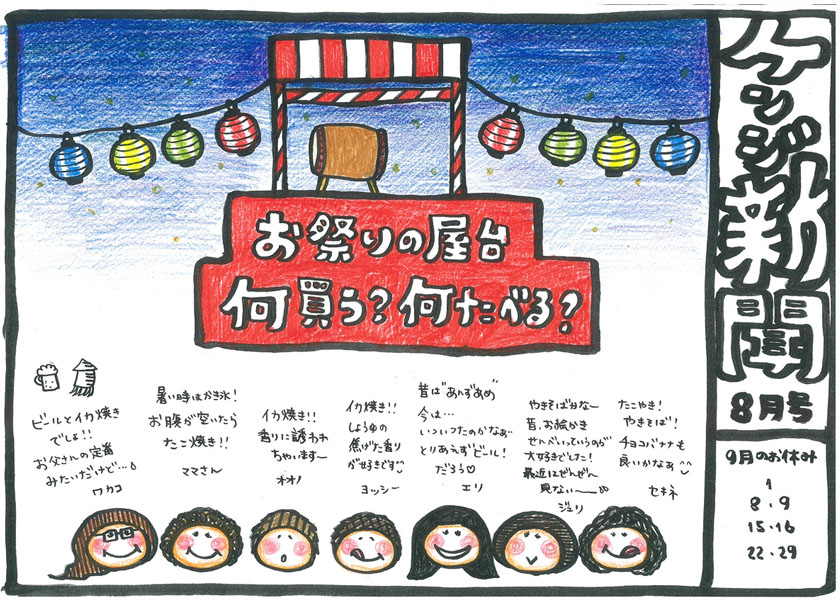 ケンジ新聞
8月号
お祭りの屋台
何買う?何たべる?
ビールとイカ焼き
でしょ!!
お父さんの定番
みたいだけど…
ワカコ
暑い時はかき氷!
お腹が空いたら
たこ焼き!!
ママさん
イカ焼き!!
香りに誘われ
ちゃいます〜
オオノ
イカ焼き!!
しょうゆの
焦げた香り
が好きです
ヨッシー
昔は"あんずあめ"
今は…
いついつたのかなぁ〜
とりあえずビール!
だろう♡
エリ
やきそばかな〜
昔、お絵かき
せんべいっていうのが
大好きでした!
最近はぜんぜん
見ない〜
ジュリ
たこやき!
やきそば!
チョコバナナも
良いかなぁ^^
セキネ
9月のお休み
1
8・9
15・16
22・29